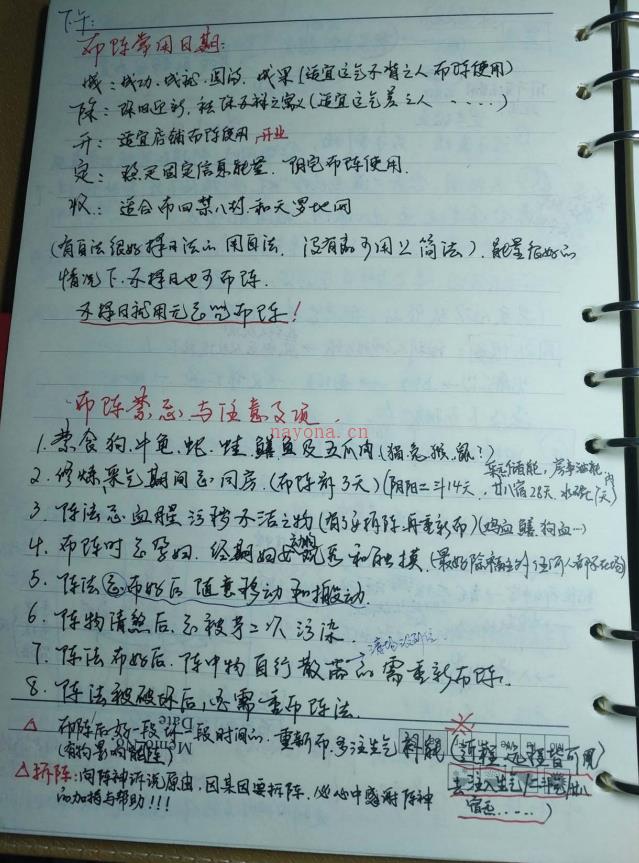 下午:
布阵常用日期:
成: 成功、成就、圆满、成果(适宜运气不背之人布阵使用)
除: 除旧迎新, 祛除不祥之寓义(适宜运气差之人 ......)
开: 适宜店铺布阵使用,开业
定: 稳定固定信息能量. 阴宅布阵使用.
收: 适合布四禁八封.和天罗地网
(有自法很好择日法的用自法, 没有的可用此简法). 能量很好的
情况下. 不择日也可布阵.
不择日就用元辰咒布阵!
布阵禁忌与注意事项.
nayona.cn
1. 禁食狗、牛、龟、蛇、蛙、鳝鱼及五爪肉(猫、兔、猴、鼠?)
2. 修炼采气期间忌同房.(布阵前3天)(阴阳二斗14天, 廿八宿28天
3. 阵法忌血腥污秽不洁之物(有了要拆阵.再重新布)(鸡血鳝、狗血…)
4. 布阵时忌孕妇、经期妇女观看和触摸.(最好除福主外任何人都不在场)
5. 阵法忌布好后随意移动和搬动.
6. 阵物清煞后忌被第二次污染.
7. 阵法布好后. 阵中物自行散落的需重新布阵.
8. 阵法被破坏后,必需重布阵法.
△ 布阵后好一段坏一段时间的. 重新布.多注生气 补能(近程、远程皆可用
(有物影响能阵)
Memo No.
Date
△拆阵:向阵神诉说原由, 因某因要拆阵. 心中感谢阵神
的加持与帮助!!!
去注入生气/二斗/廿八
宿也......)